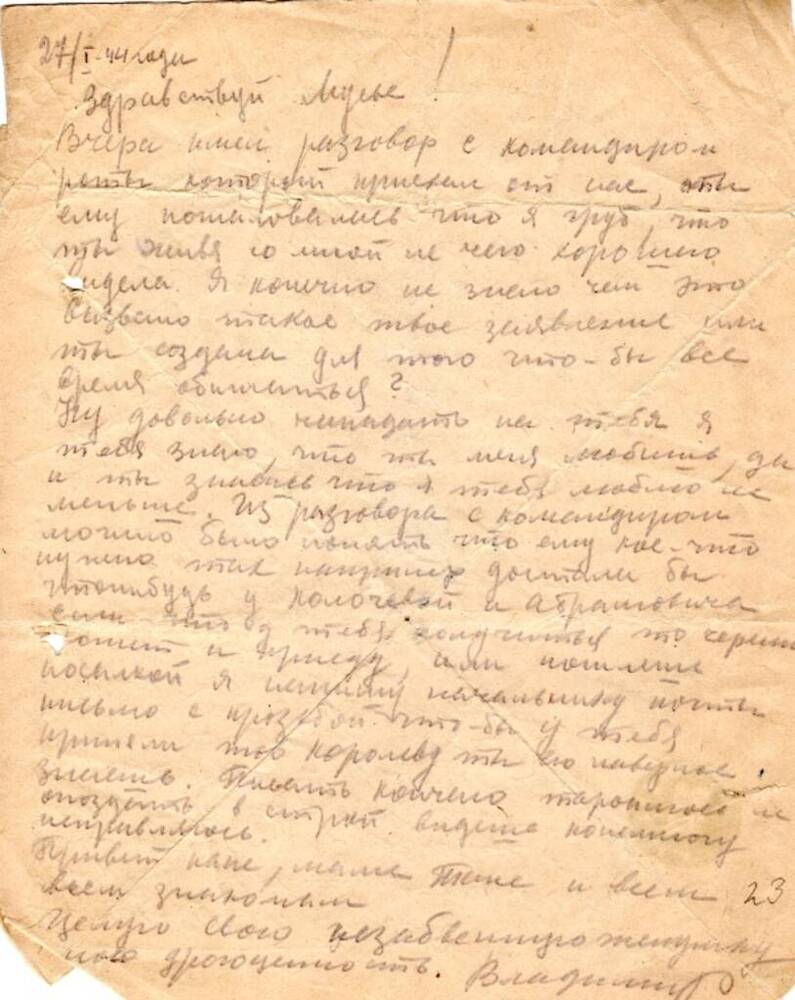 27/I-44 года
Здравствуй Мусье!
Вчера имел разговор с командиром
роты который приехал от нас, ты
ему пожаловалась что я груб, что
ты живя со мной не чего хорошего
видела. Я конечно не знаю чем это
вызвано такое твое заявление или
ты создана для того что-бы все
время обижаться?
Ну довольно нападать на тебя я
тебя знаю, что ты меня любишь, да
и ты знаешь что я тебя люблю не
меньше. Из разговора с командиром
можно было понять что ему кое-что
нужно так например достали бы
чтонибудь у Колочевой и Абрамовича
если что у тебя получиться то
может и приеду, или пошлешь
посылкой я напишу начальнику почты
письмо с прозьбой что-бы у тебя
приняли тов Королеву ты его наверное
знаешь. Писать кончаю тороплюсь не
опоздать в строй видешь понемногу
исправляюсь.
Привет папе, маме Тане и всем
всем знакомам 23
Целую свою незабвенную женушку
мою дрогоценность. Владимир